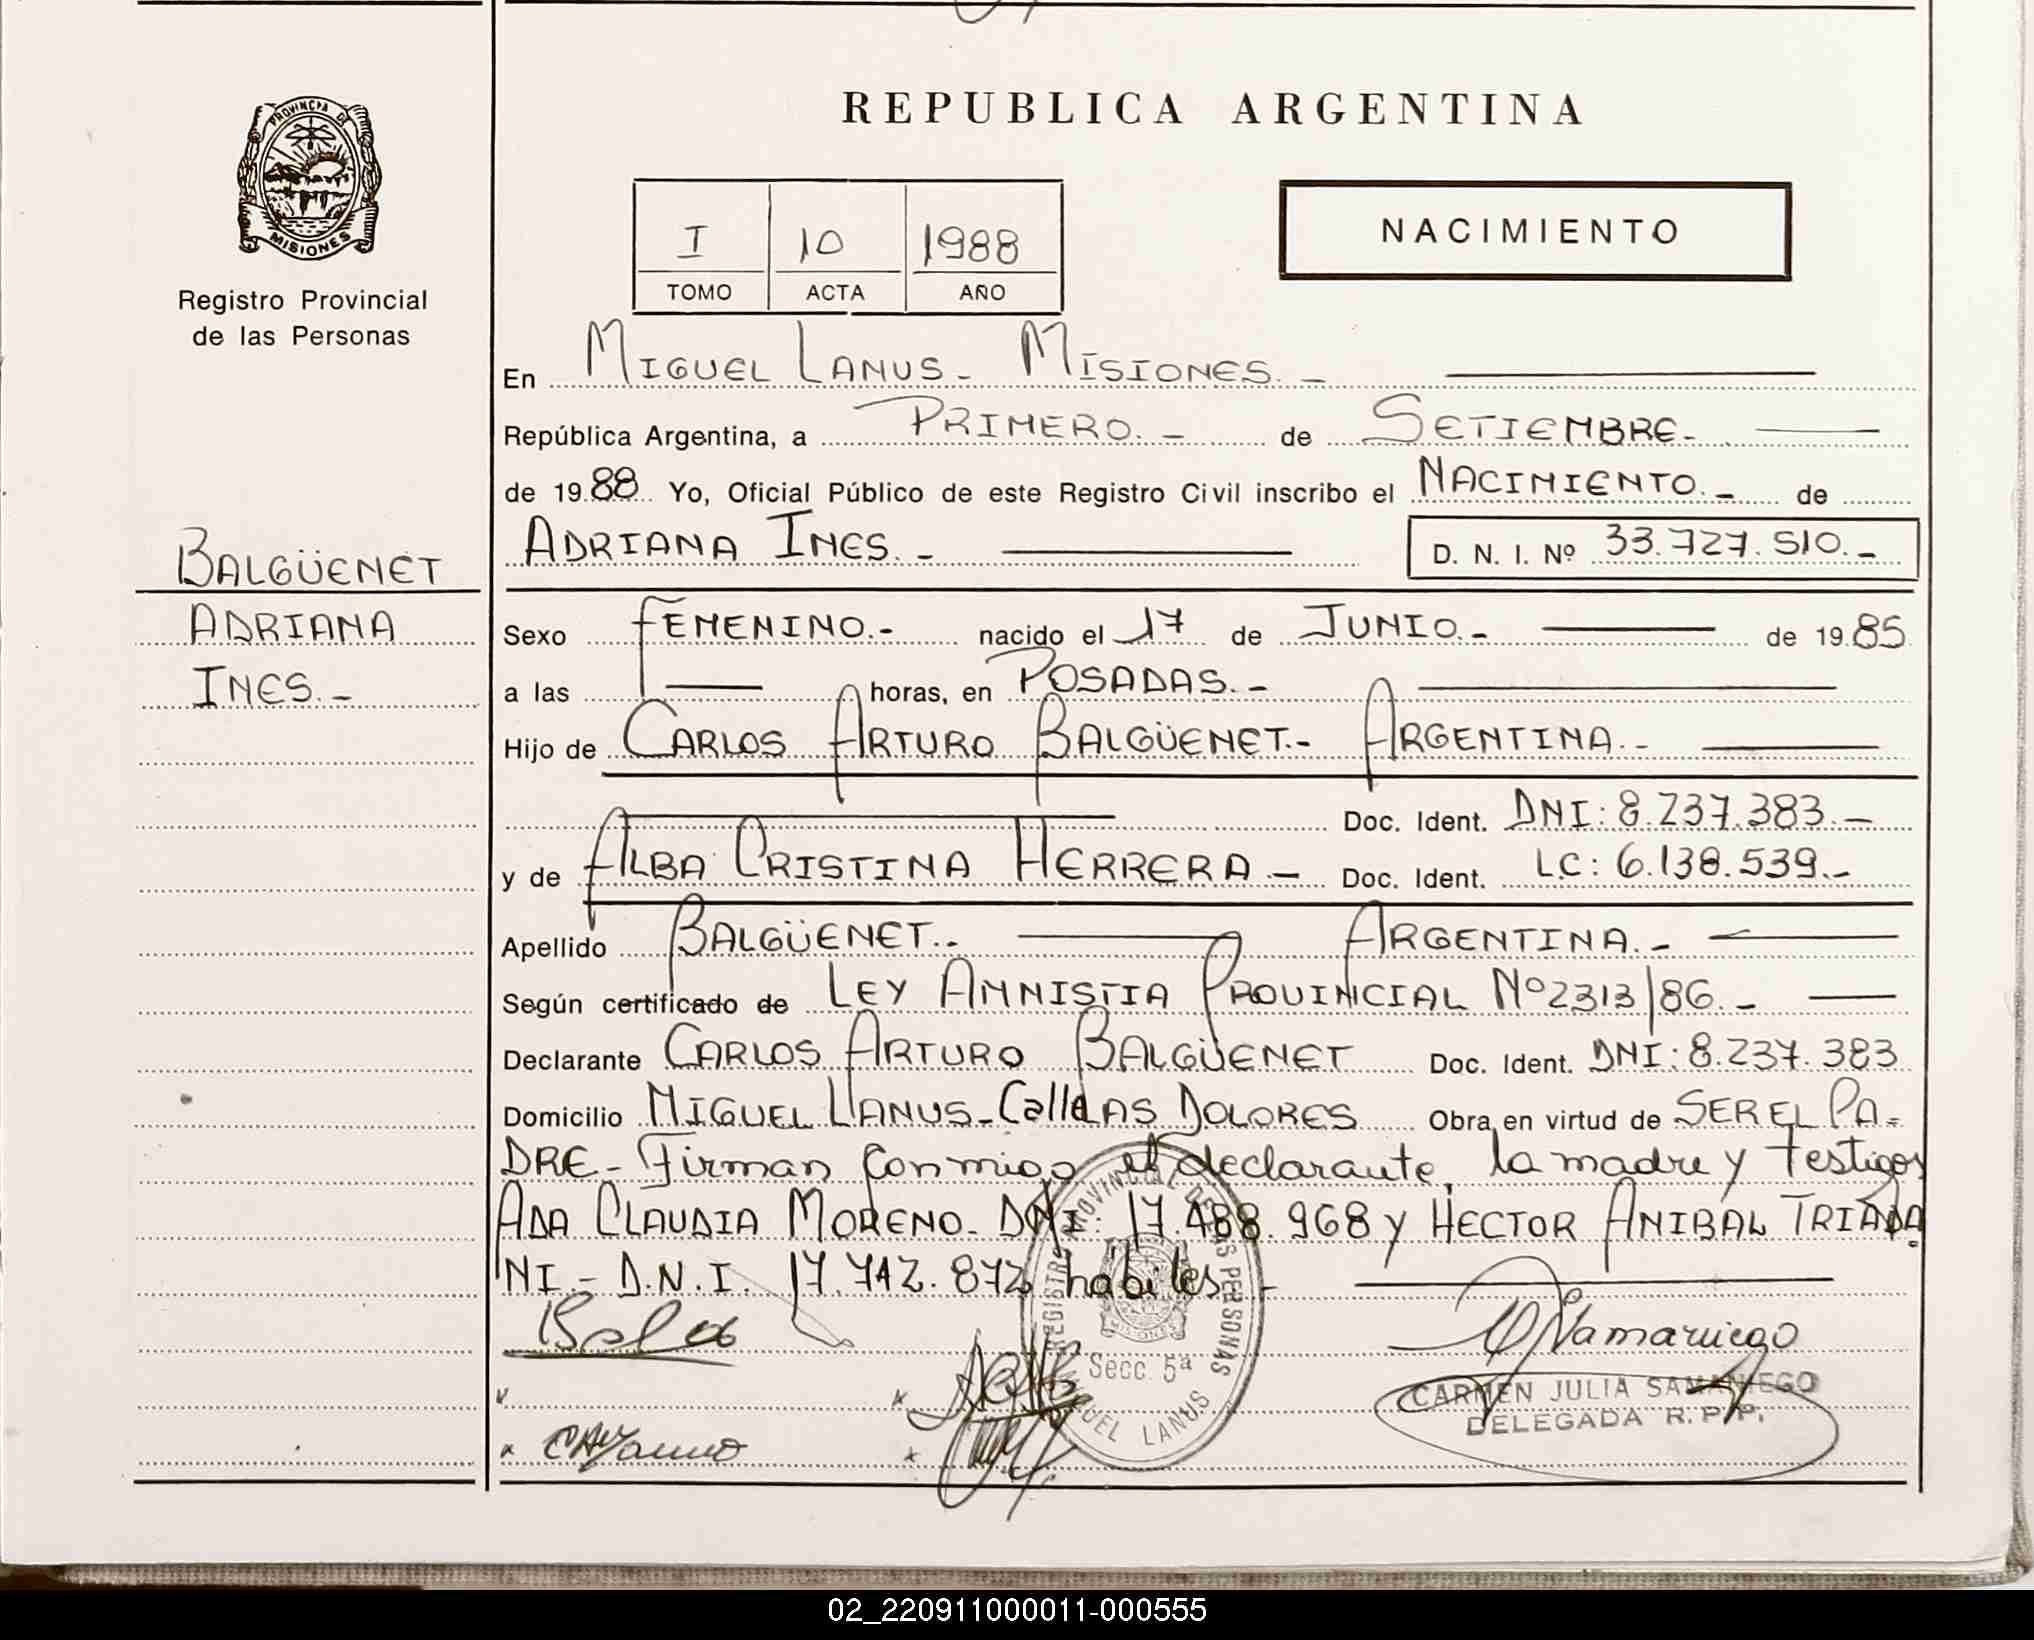 REPUBLICA ARGENTINA
PROVINCIA DE
MISIONES
Registro Provincial
de las Personas
I 10 1988
TOMO ACTA AÑO
NACIMIENTO
En MIGUEL LANUS - MISIONES. -
República Argentina, a PRIMERO. - de SETIEMBRE -
de 1988 Yo, Oficial Público de este Registro Civil inscribo el NACIMIENTO. - de
ADRIANA INES. - D. N. I. Nº 33.727.510. -
BALGÜENET
ADRIANA
INES. -
Sexo FEMENINO. - nacido el 17 de JUNIO. - de 1985
a las horas, en POSADAS. -
Hijo de CARLOS ARTURO BALGÜENET. - ARGENTINA. -
Doc. Ident. DNI: 8.237.383. -
y de ALBA CRISTINA HERRERA - Doc. Ident. LC: 6.138.539. -
Apellido BALGÜENET. - ARGENTINA. -
Según certificado de LEY AMNISTIA PROVINCIAL Nº 2313/86. -
Declarante CARLOS ARTURO BALGÜENET Doc. Ident. DNI: 8.237.383
Domicilio MIGUEL LANUS - Calle LAS DOLORES Obra en virtud de SER EL PA=
DRE - Firman conmigo el declarante, la madre y testigos
ADA CLAUDIA MORENO - DNI: 17.488.968 y HECTOR ANIBAL TRIADA
NI. - D.N.I. 17.742.872 habiles -
REGISTRO PROVINCIAL DE LAS PERSONAS
MISIONES
Secc. 5ª
MIGUEL LANUS
CARMEN JULIA SAMANIEGO
DELEGADA R. P. P.
02_220911000011-000555